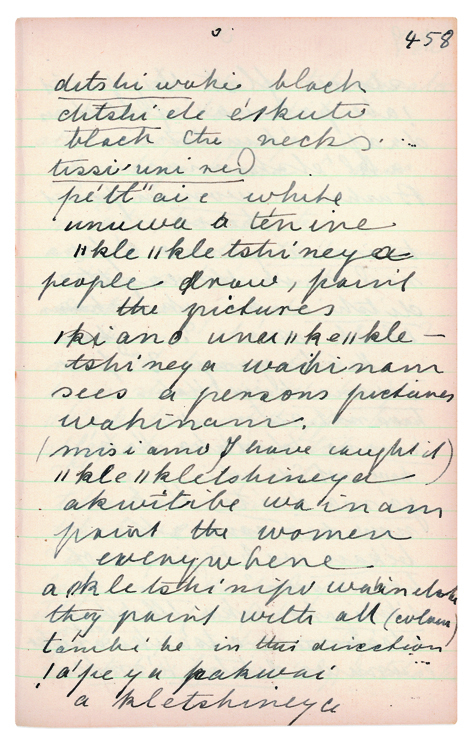 458
ditshi waki black
ditshi ele éskuti
black the necks
tissi'uni red
pe'tt"ai e white
unuwa a tén ine
"kle "kle tshi'neya
people draw, paint
the pictures
'ki anc una "ke "kle –
tshineya waihinam
sees a persons pictures
wahinam.
(misi amo I have caught it)
"kle "kletshineya
akwitibe wainam
paint the women
everywhere
a kletshinipo
they paint with all (colour)
tambi be in this direction
!a'pe ya pakwai
a kletshineya